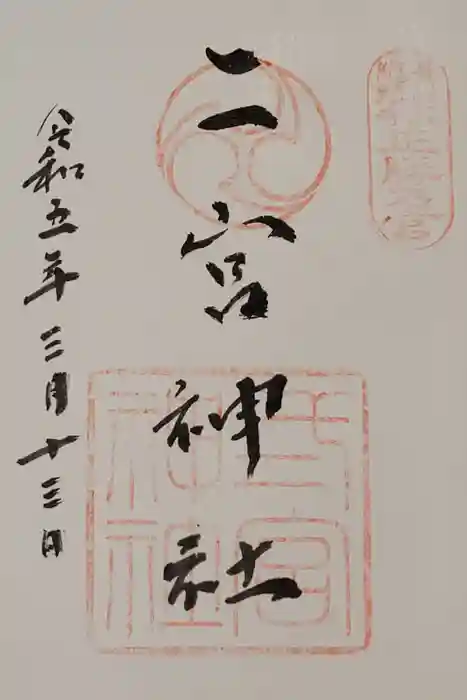 二宮神社
令和五年三月十三日
二宮
神社